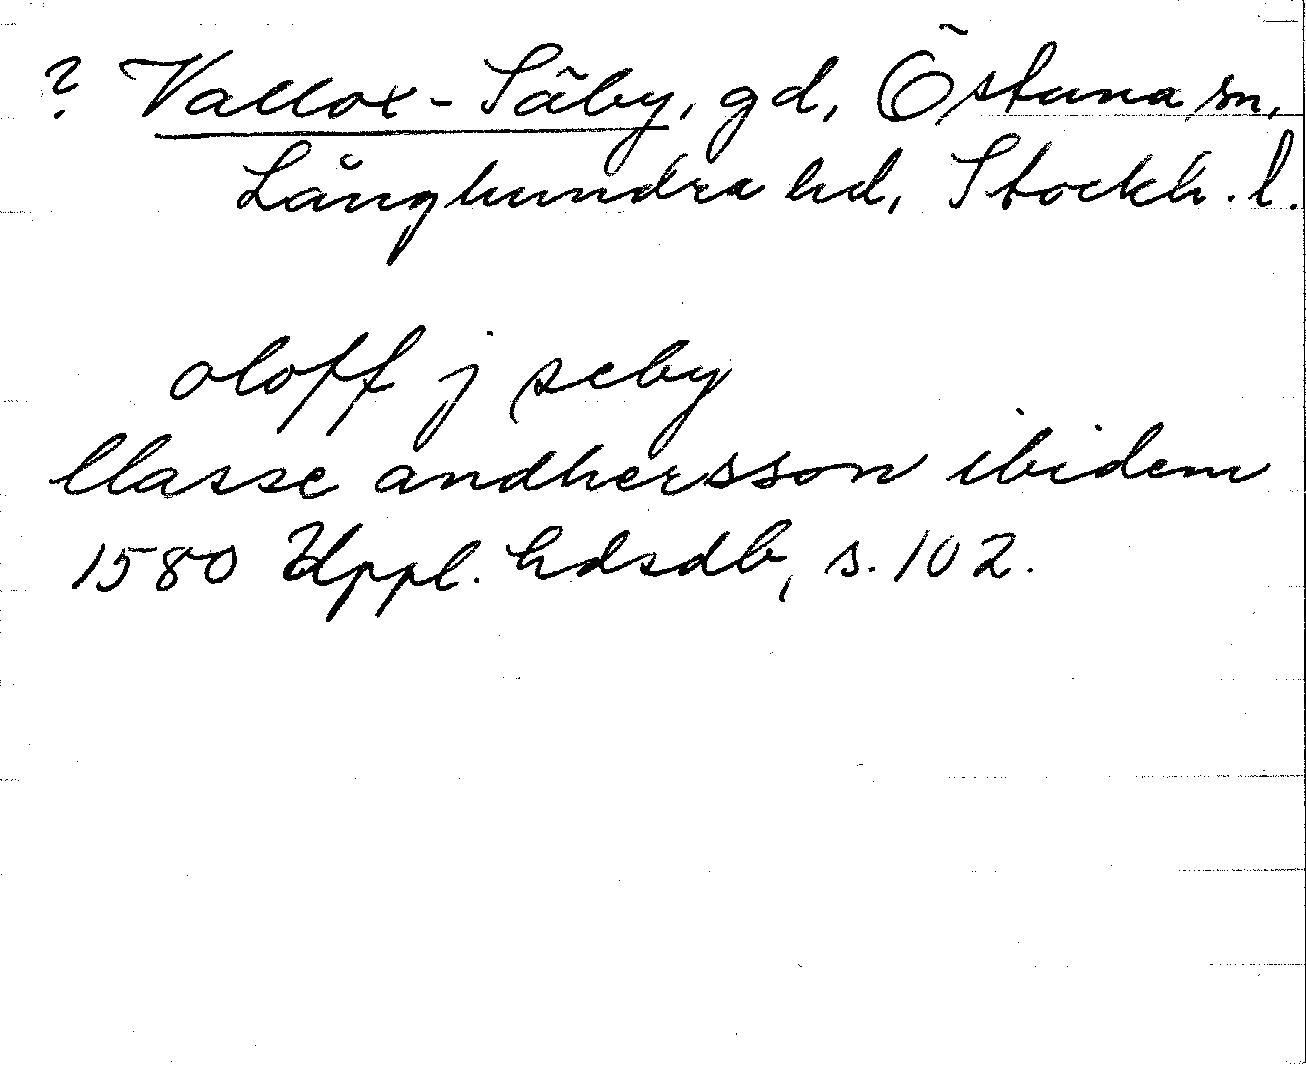 ? Vallox-Säby, gd, Östuna sn,
Långhundra hd, Stockh. l.
oloff j seby
llasse andhersson ibidem
1580 Uppl. hdsdb, s. 102.